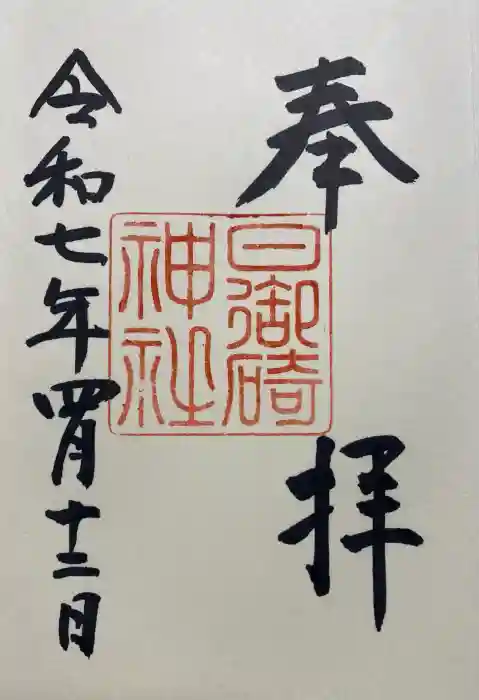 奉拝
日御碕
神社
令和七年四月十二日